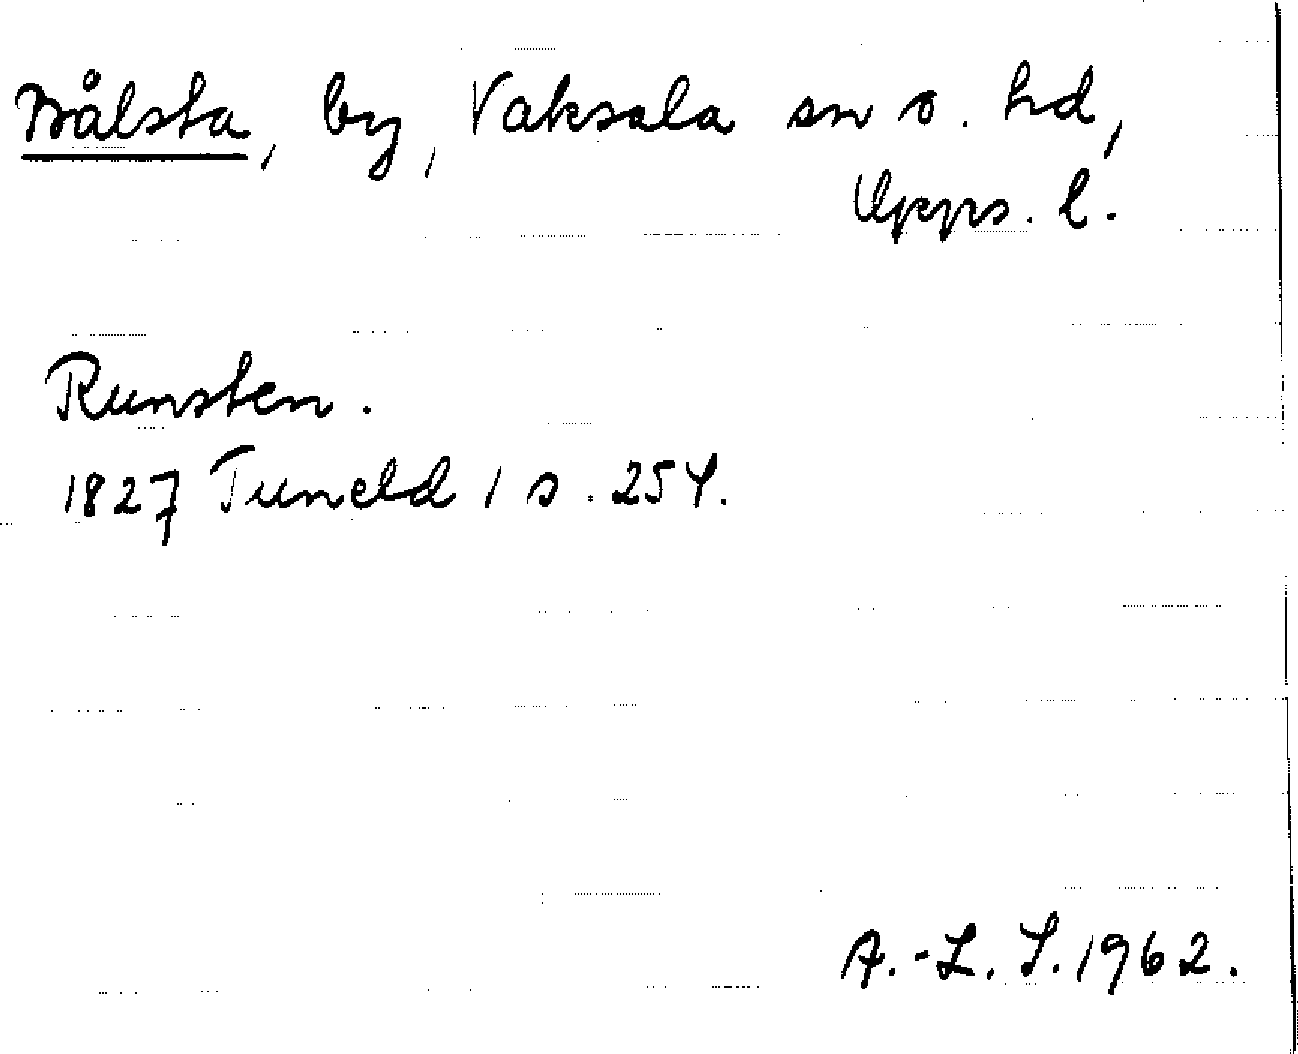 Bålsta, by, Vaksala sn o. hd,
Upps. l.
Runsten.
1827 Tuneld 1 s. 254.
A.-L. S. 1962.